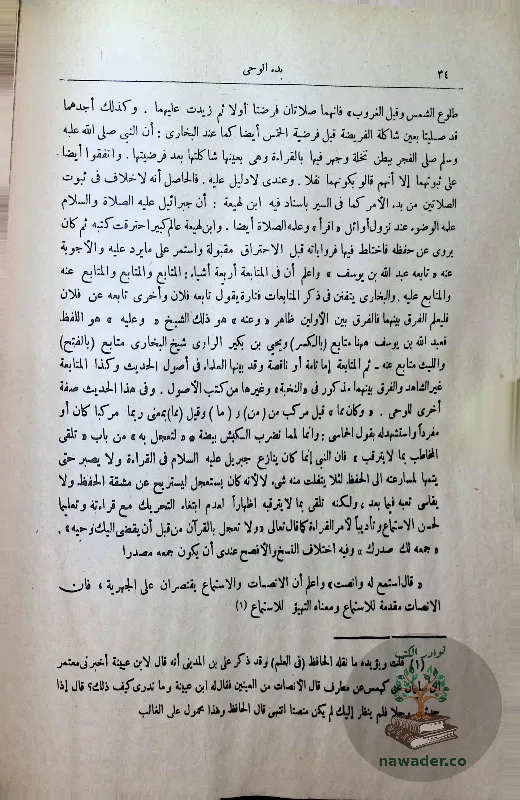 ٣٤
بدء الوحى
طلوع الشمس وقبل الغروب» فانهما صلاتان فرضتا أولا ثم زيدت عليهما . وكذلك أجدهما
قد صليتا بعين شاكلة الفريضة قبل فرضية الخمس أيضا كما عند البخارى : أن النبي صلى الله عليه
وسلم صلى الفجر ببطن نخلة وجهر فيها بالقراءة وهى بعينها شاكلتها بعد فرضيتها . واتفقوا أيضا
على ثبوتهما إلا أنهم قالو بكونهما نفلا . وعندى لا دليل عليه . فالحاصل أنه لاخلاف فى ثبوت
الصلاتين من بدء الأمر كما فى السير باسناد فيه ابن لهيعة : أن جبرائيل عليه الصلاة والسلام
علمه الوضوء عند نزول أوائل « اقرأ » وعلمه الصلاة أيضا . وابن لهيعة عالم كبير احترقت كتبه ثم كان
يروى عن حفظه فاختلط فيها فرواياته قبل الاحتراق مقبولة واستمر على مايرد عليه والأجوبة
عنه « تابعه عبد الله بن يوسف » واعلم أن فى المتابعة أربعة أشياء : المتابع والمتابع والمتابع عنه
والمتابع عليه . والبخارى يتفنن فى ذكر المتابعات فتارة يقول تابعه فلان وأخرى تابعه عن فلان
فليعلم الفرق بينهما فالفرق بين الأولين ظاهر « وعنه » هو ذلك الشيخ « وعليه » هو اللفظ
فعبد الله بن يوسف ههنا متابع (بالكسر) ويحيى بن بكير الراوى شيخ البخارى متابع (بالفتح)
والليث متابع عنه ـ ثم المتابعة إما تامة أو ناقصة وقد بينها العلماء فى أصول الحديث وكذا المتابعة
غير الشاهد والفرق بينهما مذكور فى «النخبة» وغيرها من كتب الأصول . وفى هذا الحديث صفة
أخرى للوحى . « وكان مما » قيل مركب من (من) و (ما) وقيل (مما) بمعنى ربما مركبا كان أو
مفرداً واستشهد له بقول الحماسى : وإنا لمما نضرب الكبش بيضة * « لتعجل به » من باب « تلقى
المخاطب بما لا يترقب » فان النبي إنما كان ينازع جبريل عليه السلام فى القراءة ولا يصبر حتى
يتمها لمسارعته الى الحفظ لئلا ينفلت منه شىء لا لانه كان يستعجل ليستريح عن مشقة الحفظ ولا
يقاسى تعبه فيها بعد ، ولكنه تلقى بما لا يترقبه اظهاراً لعدم ابتغاء التحريك مع قراءته وتعليما
لحسن الاستماع وتأديباً لأمر القراءة كما قال تعالى « ولا تعجل بالقرآن من قبل أن يقضى اليك وحيه» .
« جمعه لك صدرك » وفيه اختلاف النسخ والأفصح عندى أن يكون جمعه مصدرا
« قال استمع له وانصت» واعلم أن الانصات والاستماع يقتصران على الجهرية ، فان
الانصات مقدمة للاستماع ومعناه التهيؤ للاستماع (١)
نوادر الكتب
(١) قلت ويؤيده ما نقله الحافظ (فى العلم) وقد ذكر على بن المدينى أنه قال لابن عيينة أخبرنى معتمر
كهمس عن مطرف قال الانصات من العينين فقال له ابن عيينة وما ندرى كيف ذلك؟ قال إذا
فلم ينظر إليك لم يكن منصتا انتهى قال الحافظ وهذا محمول على الغالب
nawader.co